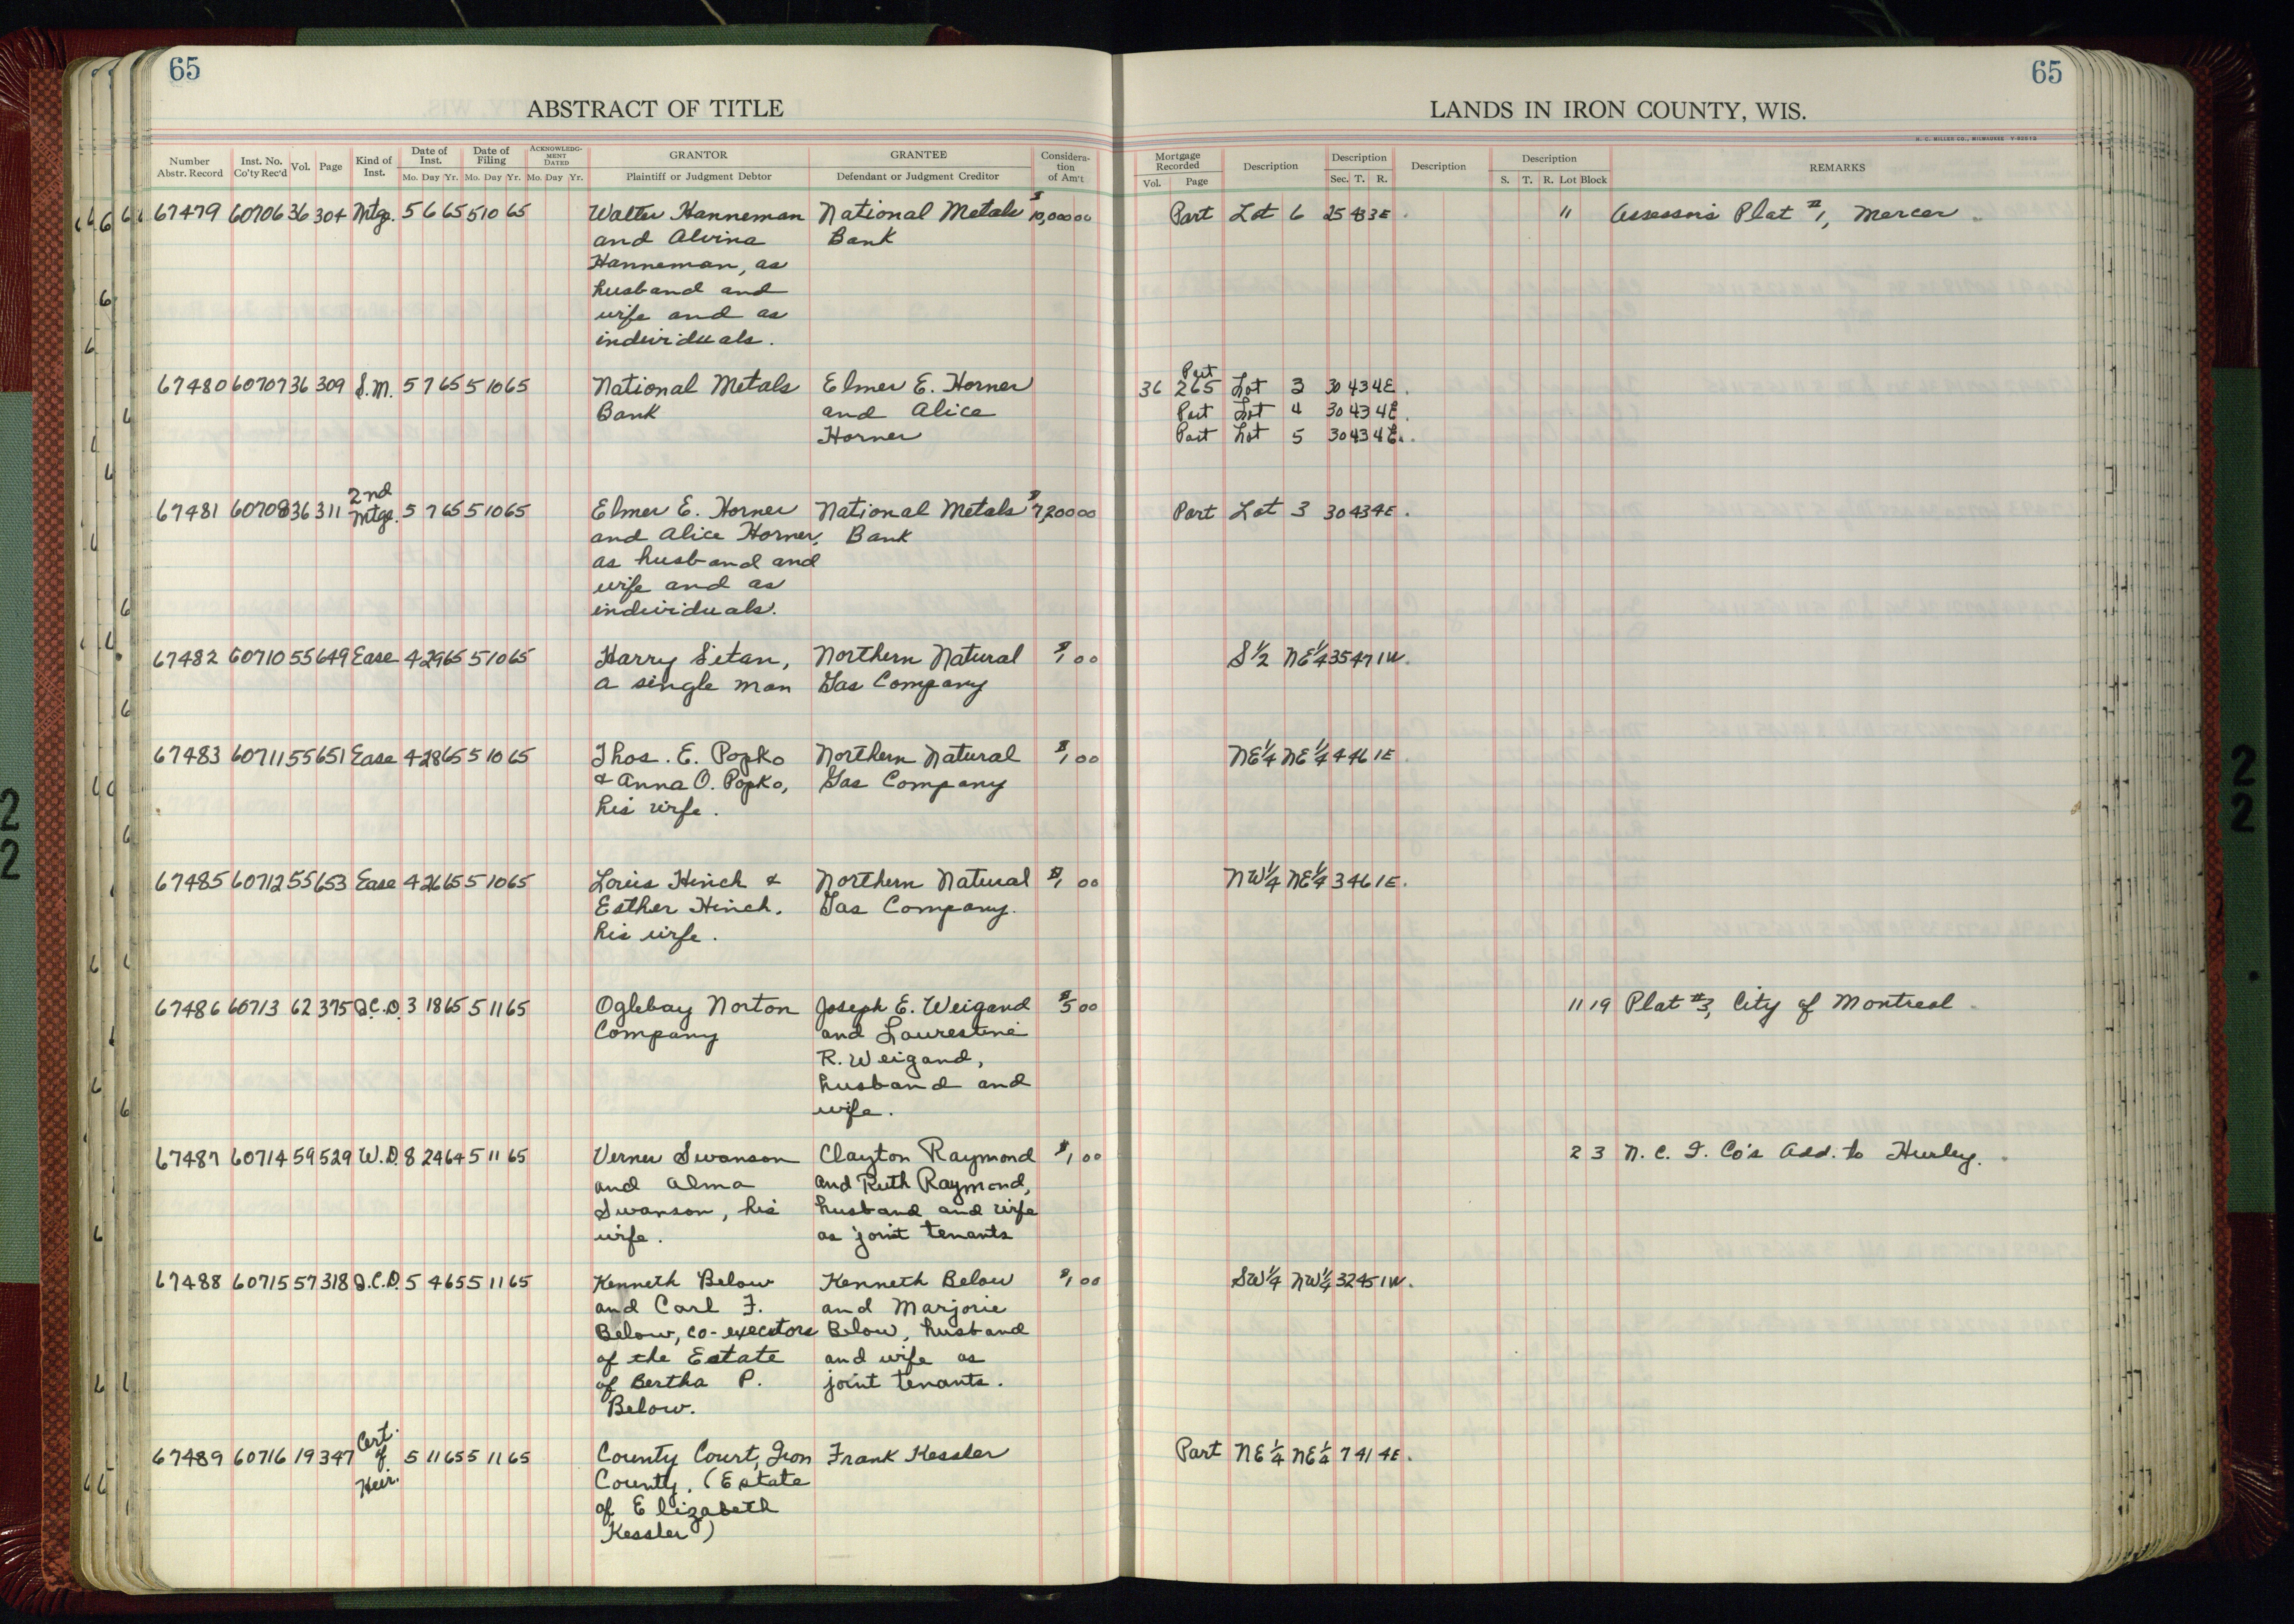 65
65
ABSTRACT OF TITLE
LANDS IN IRON COUNTY, WIS.
H. C. MILLER CO., MILWAUKEE
Number Abstr. Record Inst. No. Co'ty Rec'd Vol. Page Kind of Inst. Date of Inst. Mo. Day Yr. Date of Filing Mo. Day Yr. ACKNOWLEDGMENT DATED Mo. Day Yr. GRANTOR Plaintiff or Judgment Debtor GRANTEE Defendant or Judgment Creditor Consideration of Am't
Mortgage Recorded Vol. Page Description Description Sec. T. R. Description Description S. T. R. Lot Block REMARKS
67479 60706 36 304 Mtge. 5 6 65 5 10 65 Walter Hanneman National Metals $10,000 00 Part Lot 6 25 43 3E 11 Assessor's Plat #1, Mercer
and Alvina Bank
Hanneman, as
husband and
wife and as
individuals.
Part
67480 60707 36 309 S.M. 5 7 65 5 10 65 National Metals Elmer E. Horner 36 265 Lot 3 30 43 4E.
Bank and Alice Part Lot 4 30 43 4E.
Horner Part Lot 5 30 43 4E.
2nd
67481 60708 36 311 Mtge. 5 7 65 5 10 65 Elmer E. Horner National Metals $7,200 00 Part Lot 3 30 43 4E.
and Alice Horner, Bank
as husband and
wife and as
individuals.
67482 60710 55 649 Ease 4 29 65 5 10 65 Harry Sitan, Northern Natural $1 00 S 1/2 NE 1/4 35 47 1W.
a single man Gas Company
67483 60711 55 651 Ease 4 28 65 5 10 65 Thos. E. Popko Northern Natural $1 00 NE 1/4 NE 1/4 4 46 1E
& Anna O. Popko, Gas Company
his wife.
67485 60712 55 653 Ease 4 26 65 5 10 65 Louis Hinch & Northern Natural $1 00 NW 1/4 NE 1/4 3 46 1E.
Esther Hinch, Gas Company.
his wife.
67486 60713 62 375 Q.C.D. 3 18 65 5 11 65 Oglebay Norton Joseph E. Weigand $5 00 11 19 Plat #3, City of Montreal
Company and Laurestine
R. Weigand,
husband and
wife.
67487 60714 59 529 W.D. 8 24 64 5 11 65 Verner Swanson Clayton Raymond $1 00 2 3 N. C. I. Co's Add. to Hurley.
and Alma and Ruth Raymond,
Swanson, his husband and wife
wife. as joint tenants
67488 60715 57 318 Q.C.D. 5 4 65 5 11 65 Kenneth Below Kenneth Below $1 00 SW 1/4 NW 1/4 32 45 1W.
and Carl F. and Marjorie
Below, co-executors Below, husband
of the Estate and wife as
of Bertha P. joint tenants.
Below.
Cert.
67489 60716 19 347 of 5 11 65 5 11 65 County Court, Iron Frank Kessler Part NE 1/4 NE 1/4 7 41 4E.
Heir. County. (Estate
of Elizabeth
Kessler)